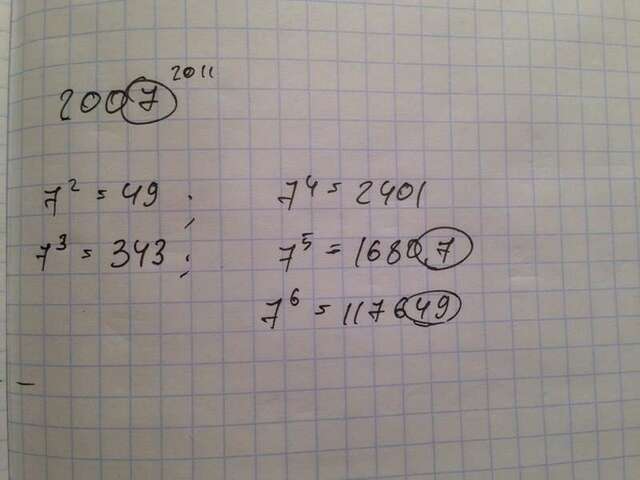 2007²⁰¹¹
7² = 49 ; 7⁴ = 2401
7³ = 343 ; 7⁵ = 16807
7⁶ = 117649